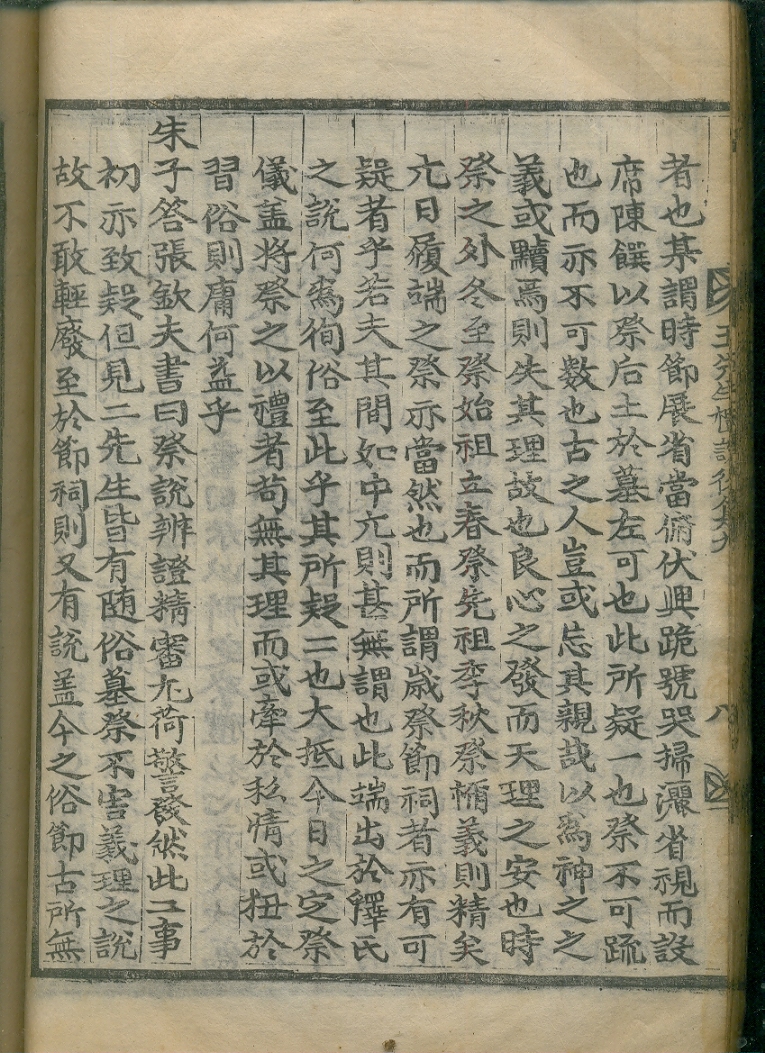 者也某謂時節展省當俯伏興跪號哭掃灑省視而設
席陳饌以祭后土於墓左可也此所疑一也祭不可疏
也而亦不可数也古之人豈或忘其親哉以爲神之之
義或黷焉則失其理故也良心之發而天理之安也時
祭之外冬至祭始祖立春祭先祖季秋祭禰義則精矣
元日履端之祭亦當然也而所謂歳祭節祠者亦有可
疑者乎若夫其間如中元則甚無謂也此端出於釋氏
之說何爲徇俗至此乎其所疑二也大抵今日之定祭
儀盖將祭之以禮者苟無其理而或牽於私情或扭於
習俗則庸何益乎
朱子答張欽夫書曰祭說辨證精審尤荷警發然此二事
初亦致疑但見二先生皆有随俗墓祭不害義理之說
故不敢輕廢至於節祠則又有說盖今之俗節古所無
王先生 後集九
八